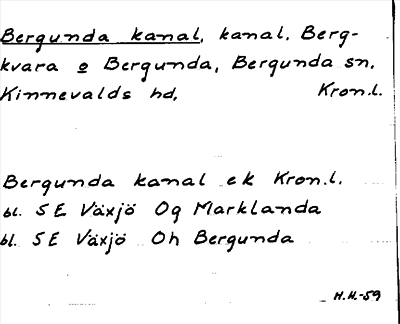 Bergunda kanal, kanal. Berg-
kvara o Bergunda, Bergunda sn,
Kinnevalds hd, Kron.l.
Bergunda kanal ek Kron.l.
bl. 5E Växjö Og Marklanda
bl. 5E Växjö Oh Bergunda
H.H.-59